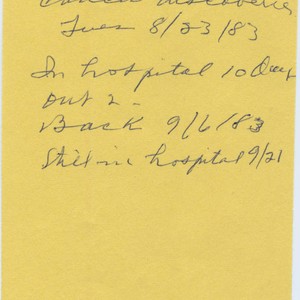 Cancer discovered
Tues 8/23/83
In hospital 10 Days
out 2 -
Back 9/6/83
Still in hospital 9/21